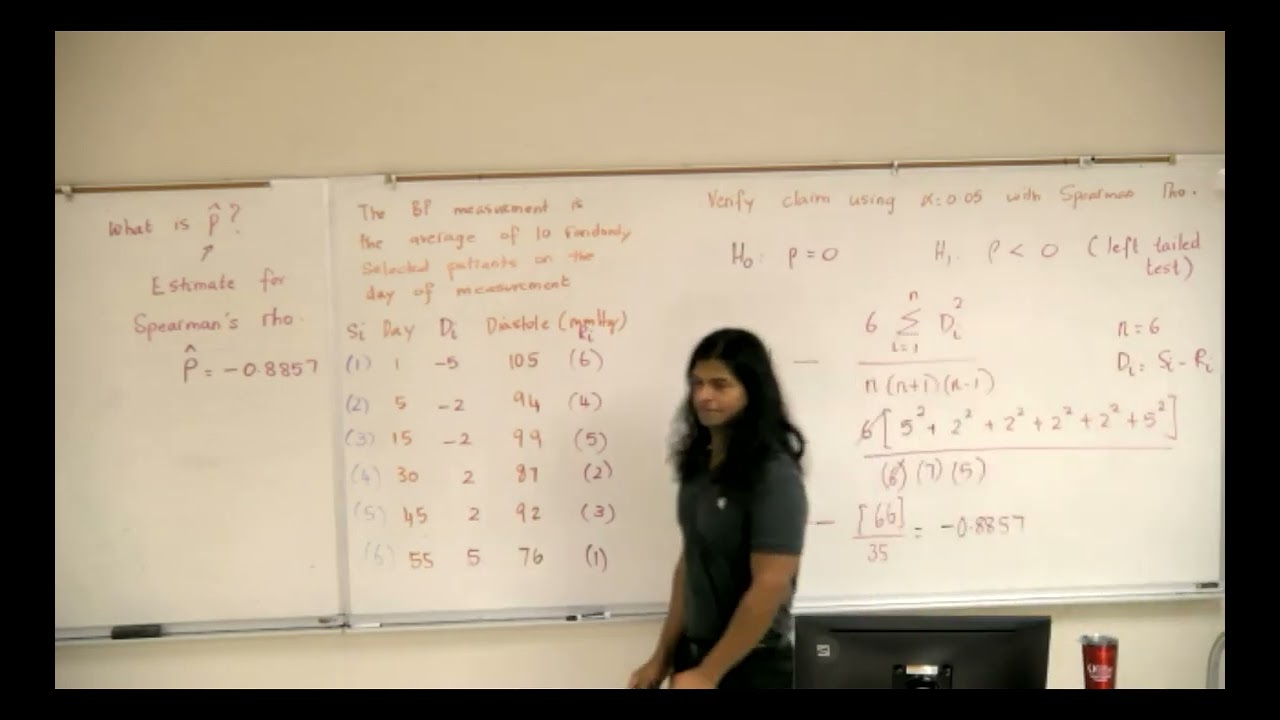 What is p̂?
↗
Estimate for
Spearman's rho.
p̂ = -0.8857
The BP measurment is
the average of 10 randomly
Selected patients on the
day of measurement
Si Day Di Diastole (mmHg)
Ri
(1) 1 -5 105 (6)
(2) 5 -2 94 (4)
(3) 15 -2 99 (5)
(4) 30 2 87 (2)
(5) 45 2 92 (3)
(6) 55 5 76 (1)
Verify claim using α=0.05 with Spearman rho.
H₀: ρ = 0 H₁: ρ < 0 (left tailed
test)
— 6 Σ Dᵢ² n = 6
n
i=1
n(n+1)(n-1) Dᵢ = Sᵢ - Rᵢ
6[5² + 2² + 2² + 2² + 2² + 5²]
(6)(7)(5)
— [66] = -0.8857
35